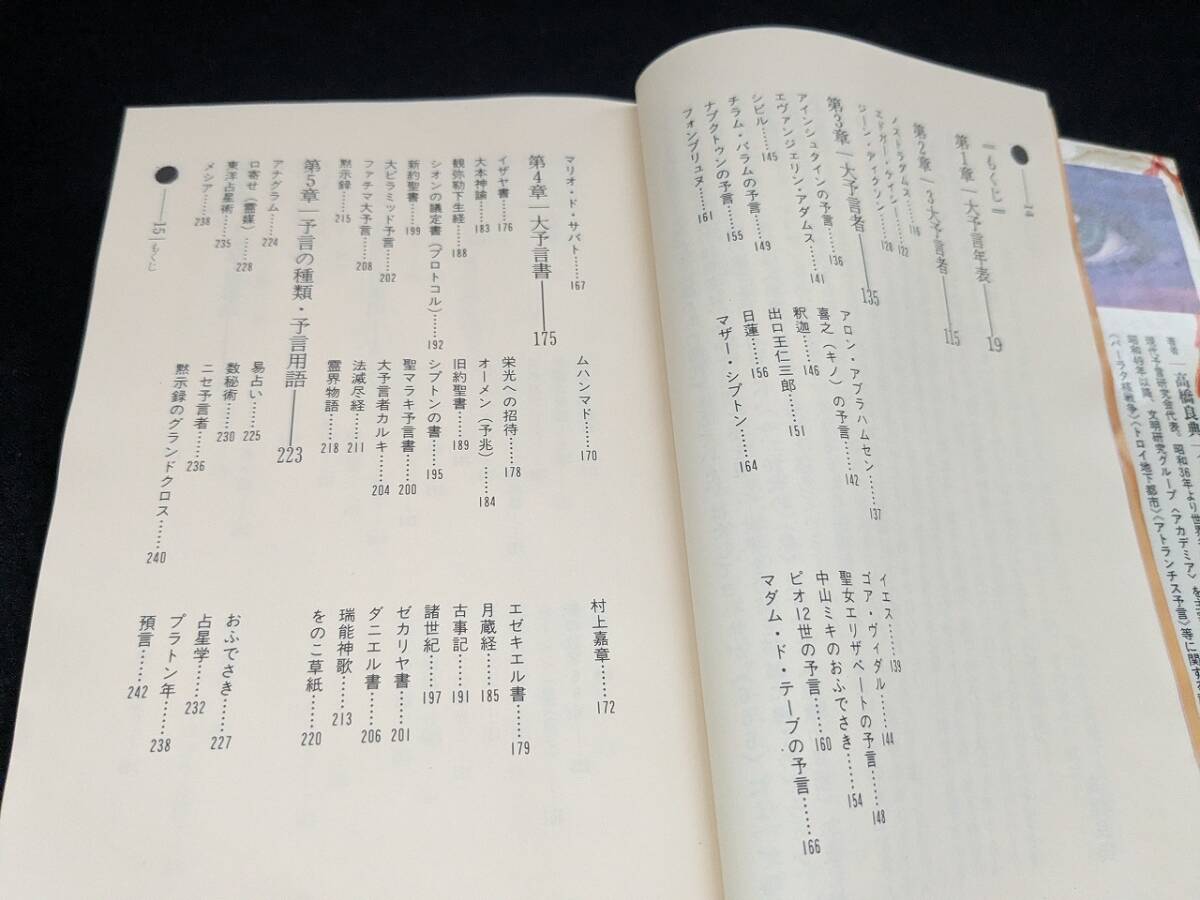 14
もくじ
第1章 大予言年表――19
第2章 3大予言者――115
ノストラダムス……116
エドガー・ケイシー……122
ジーン・ディクソン……128
第3章 大予言者――135
アロン・アブラハムセン……137
イエス……139
アインシュタインの予言……136
喜之(キノ)の予言……142
ゴア・ヴィダル……144
エヴァンジェリン・アダムス……141
釈迦……146
聖女エリザベートの予言……148
シビル……145
出口王仁三郎……151
中山ミキのおふでさき……154
チラム・バラムの予言……149
日蓮……156
ピオ12世の予言……160
ナブクトゥンの予言……155
マザー・シプトン……164
マダム・ド・テーブの予言……166
フォンブリュヌ……161
マリオ・ド・サバト……167
ムハンマド……170
村上嘉章……172
第4章 大予言書――175
イザヤ書……176
栄光への招待……178
エゼキエル書……179
大本神諭……183
オーメン(予兆)……184
月蔵経……185
観弥勒下生経……188
旧約聖書……189
古事記……191
シオンの議定書(プロトコル)……192
シプトンの書……195
諸世紀……197
新約聖書……199
聖マラキ予言書……200
ゼカリヤ書……201
大ピラミッド予言……202
大予言者カルキ……204
ダニエル書……206
ファチマ大予言……208
法滅尽経……211
瑞能神歌……213
黙示録……215
霊界物語……218
をのこ草紙……220
第5章 予言の種類・予言用語――223
アナグラム……224
易占い……225
おふでさき……227
口寄せ(霊媒)……228
数秘術……230
占星学……232
東洋占星術……235
ニセ予言者……236
プラトン年……238
メシア……238
黙示録のグランドクロス……240
預言……242
15 もくじ
著者 高橋良典
現代予言研究会代表。昭和36年より世界
昭和49年以降、文明研究グループ〈アカデミア〉を主
〈トロイ地下都市〉〈アトランチス予言〉等に関する